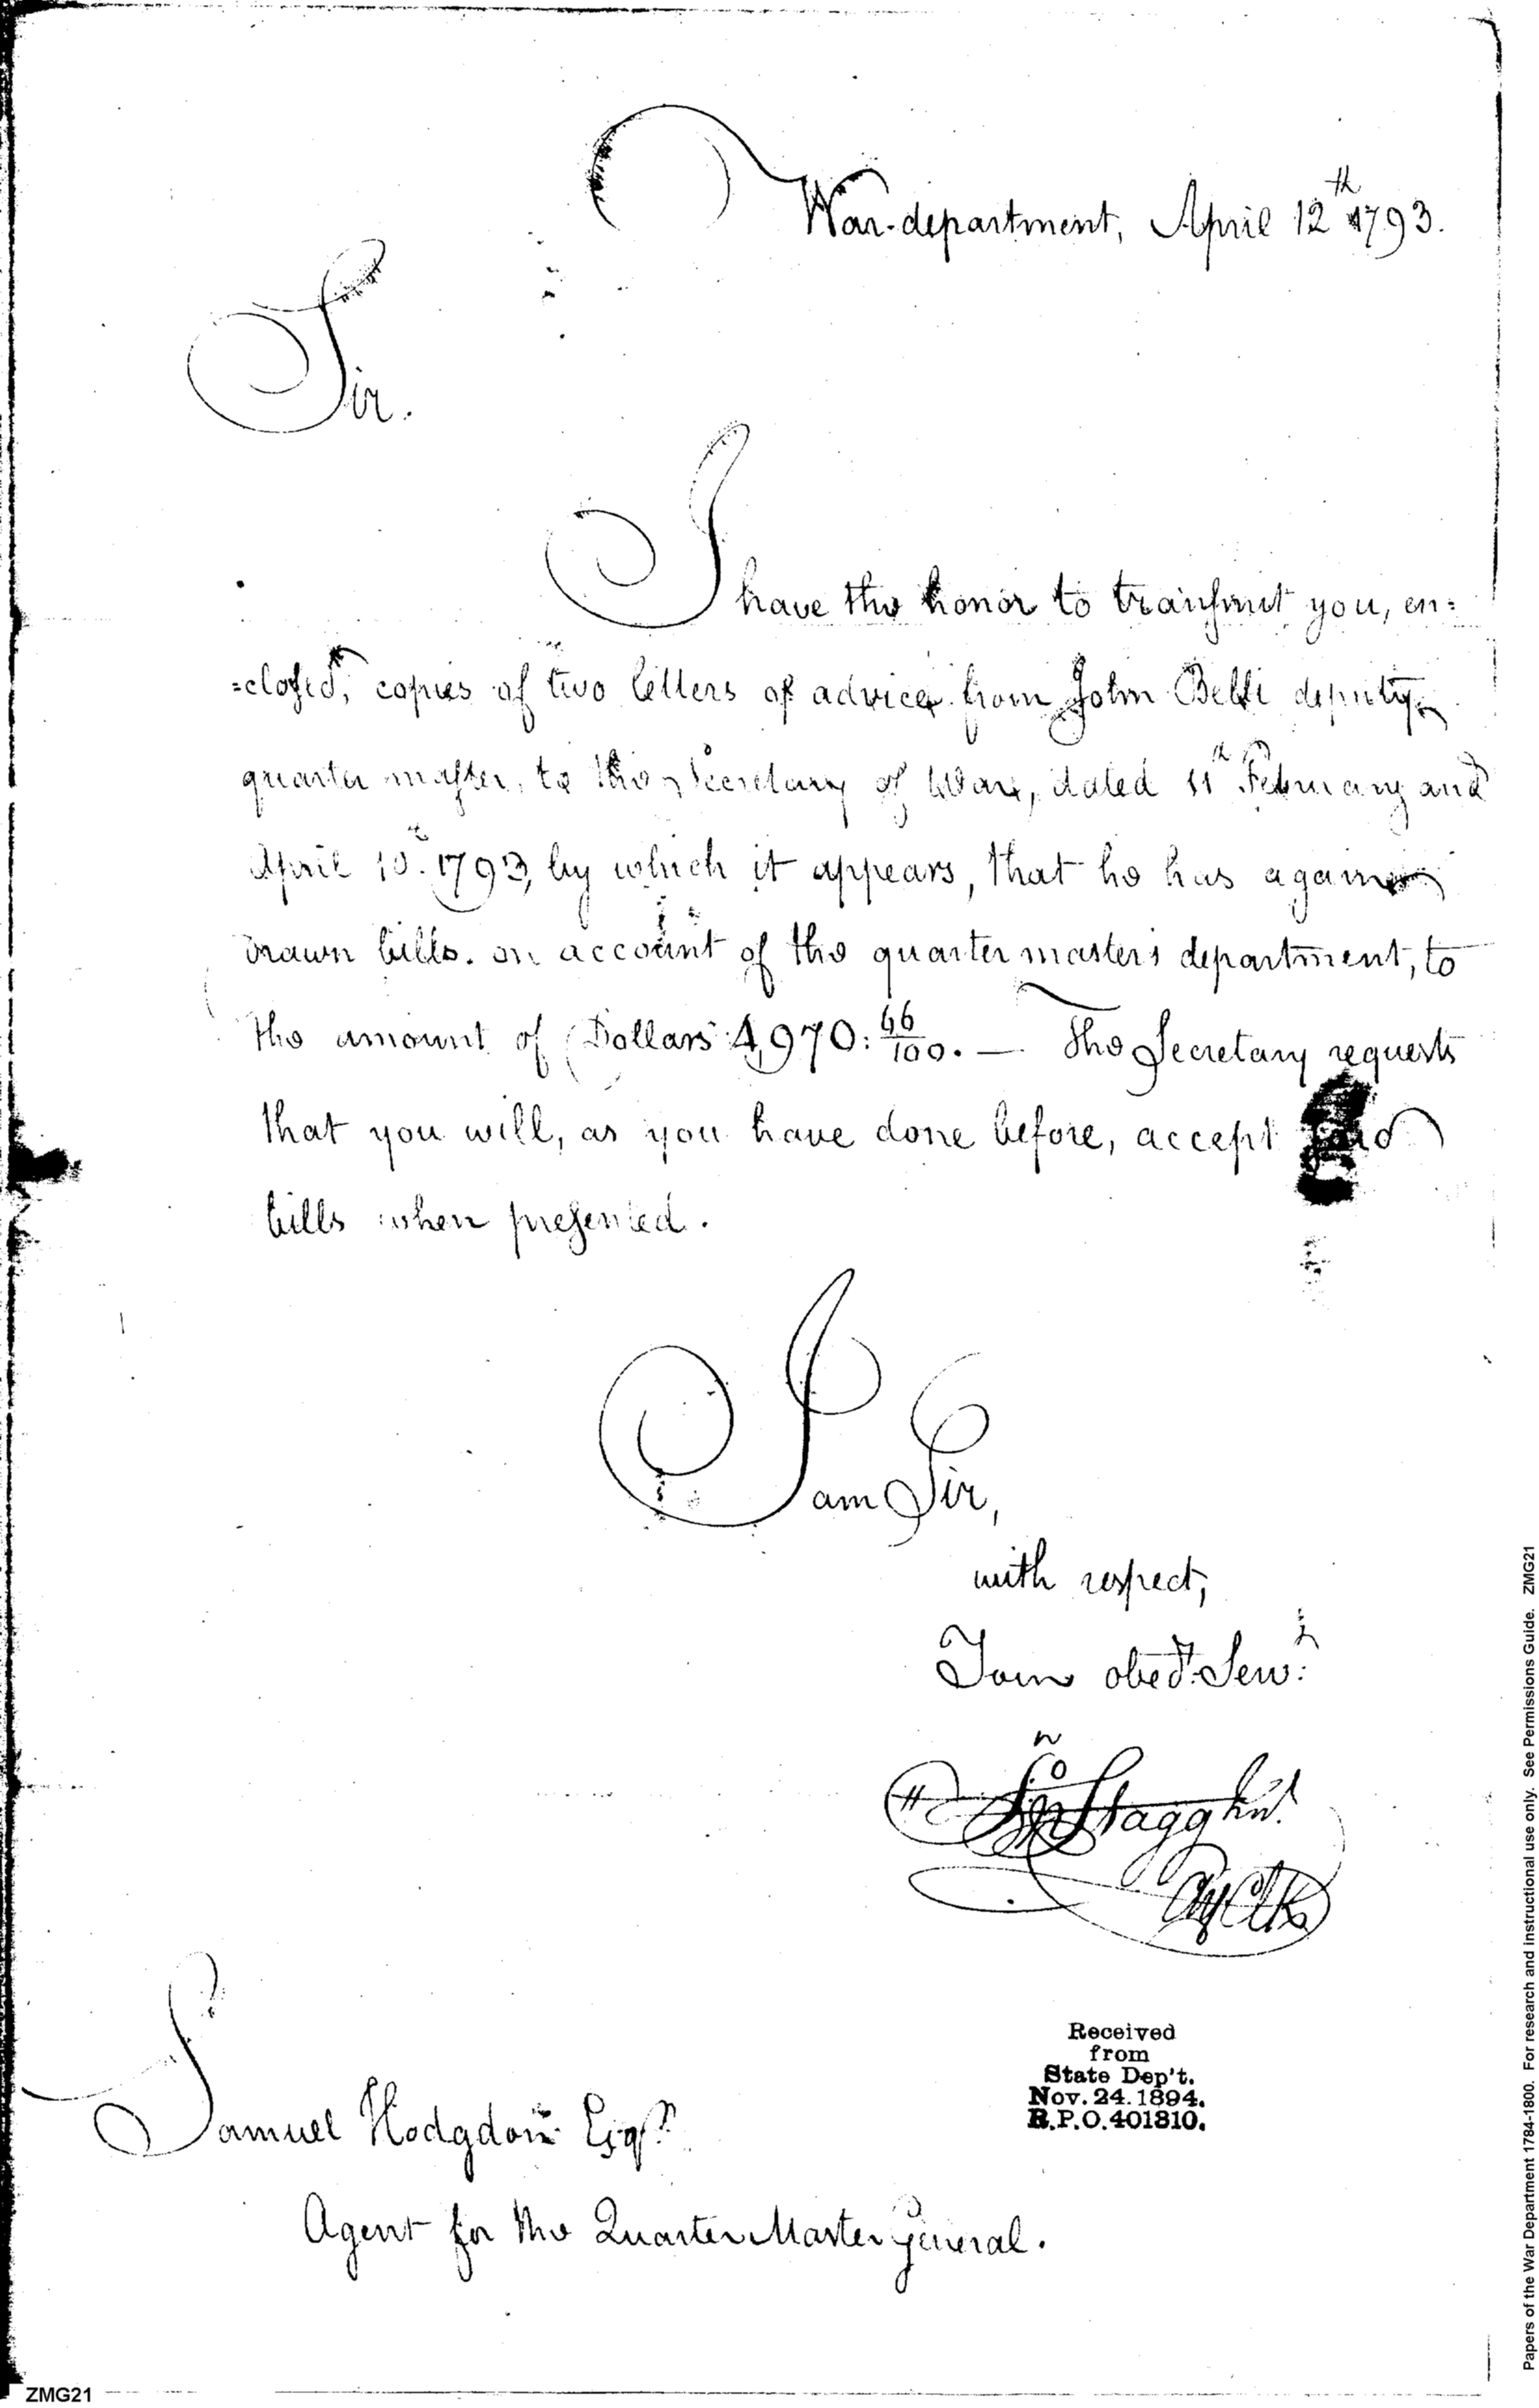 War-department, April 12th 1793.
Sir.
I have the honor to transmit you, en=
=closed, copies of two letters of advice from John Belli deputy
quarter master, to the Secretary of War, dated 11th February and
April 10th 1793, by which it appears, that he has again
drawn bills on account of the quarter master's department, to
the amount of Dollars 4,970: 66/100. — The Secretary requests
that you will, as you have done before, accept said
bills when presented.
I am Sir,
with respect,
Your obedt. Servt:
Jno Stagg Junr.
Chf Clk
Received
from
State Dep't.
Nov. 24. 1894.
R.P.O. 401810.
Samuel Hodgdon Esqr.
Agent for the Quarter Master General.
ZMG21
Papers of the War Department 1784-1800. For research and instructional use only. See Permissions Guide. ZMG21